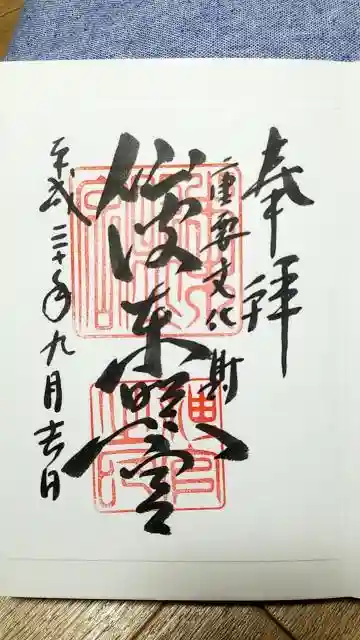 奉拝
重要文化財
仙波東照宮
平成三十年九月吉日